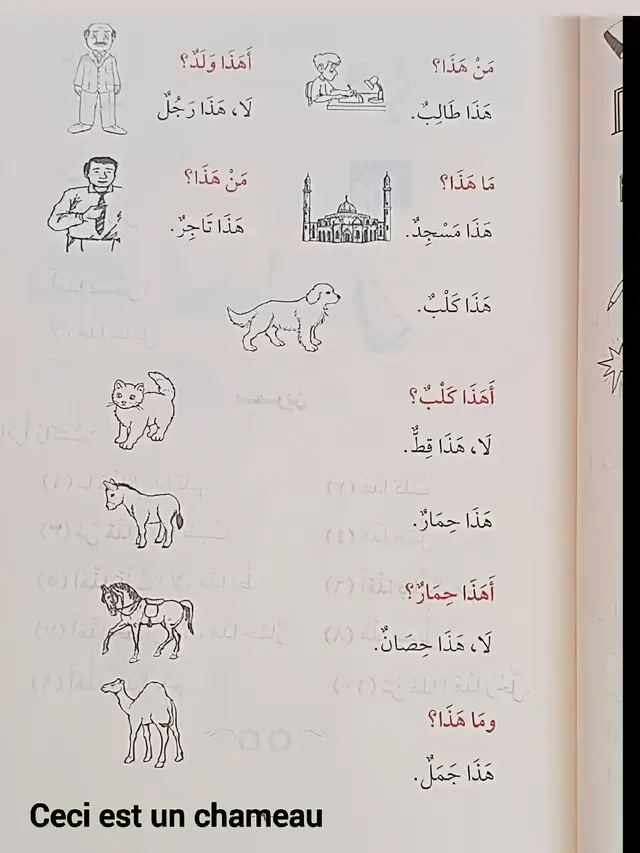 مَنْ هَذَا؟
هَذَا طَالِبٌ.
أَهَذَا وَلَدٌ؟
لَا، هَذَا رَجُلٌ
مَا هَذَا؟
هَذَا مَسْجِدٌ.
مَنْ هَذَا؟
هَذَا تَاجِرٌ.
هَذَا كَلْبٌ.
أَهَذَا كَلْبٌ؟
لَا، هَذَا قِطٌّ.
هَذَا حِمَارٌ.
أَهَذَا حِمَارٌ؟
لَا، هَذَا حِصَانٌ.
ومَا هَذَا؟
هَذَا جَمَلٌ.
Ceci est un chameau